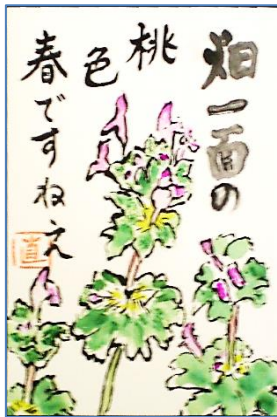 畑一面の
桃
色
春ですねえ
直